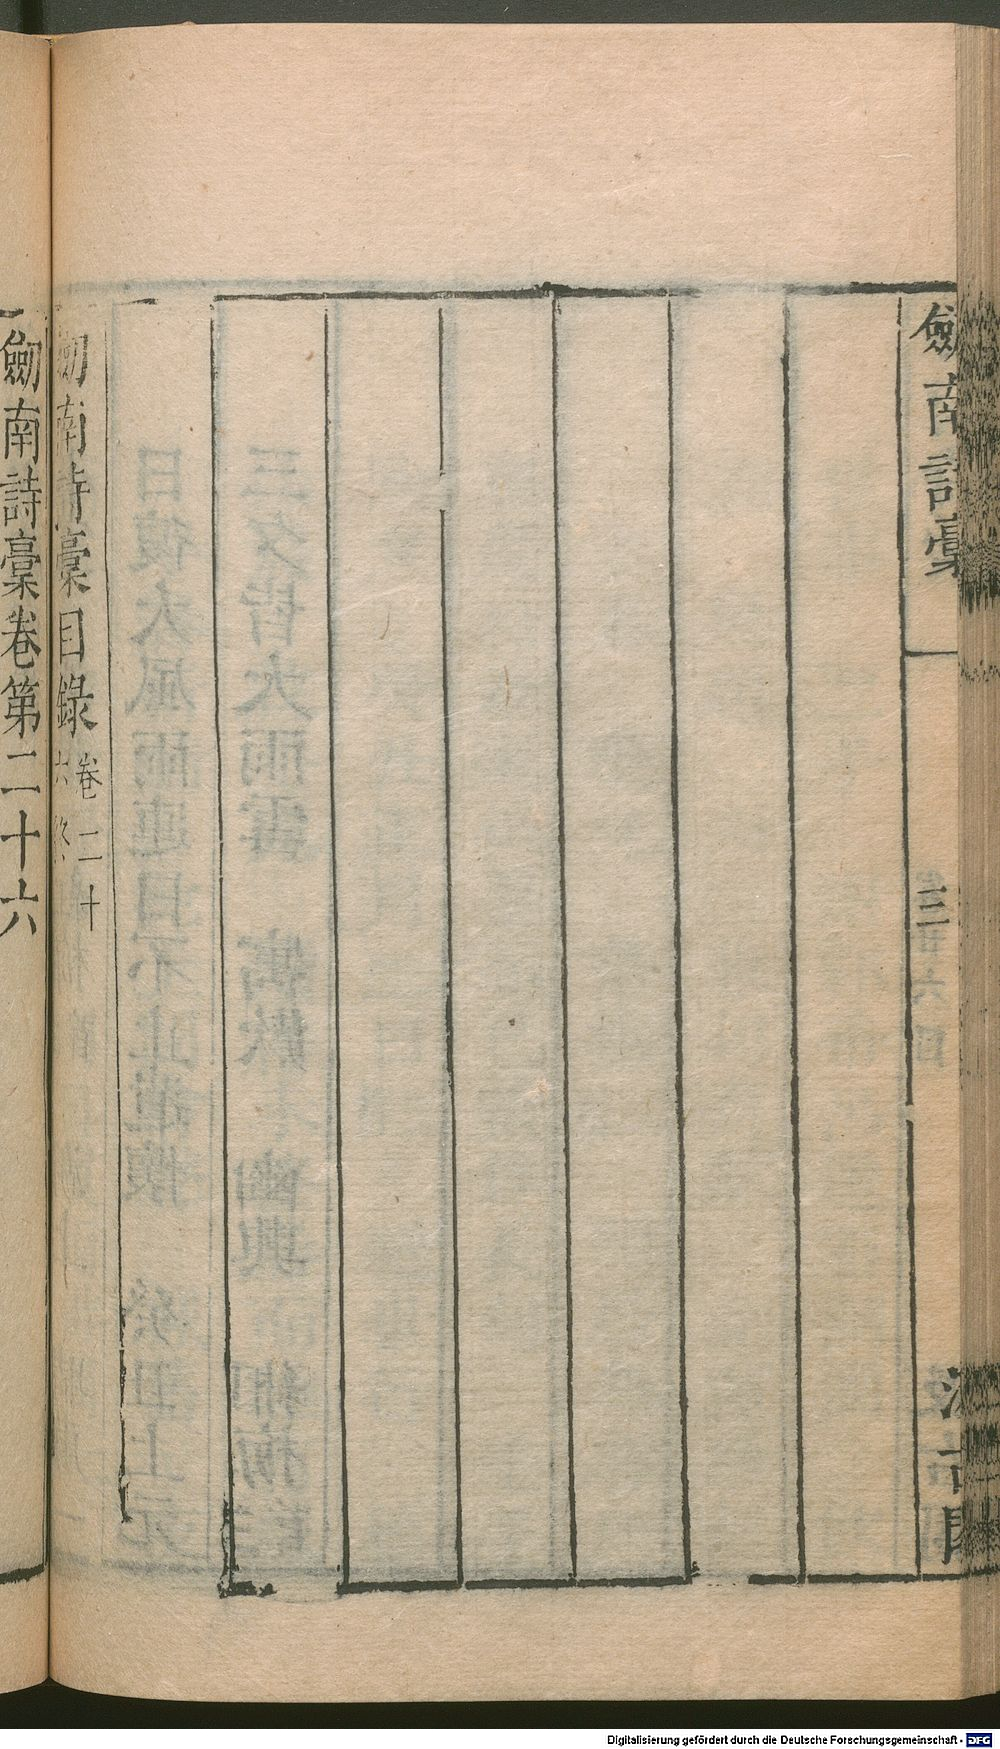 劒南詩稾
三
汲古閣
劒南詩稾目錄 卷二十六終
劒南詩稾卷第二十六
Digitalisierung gefördert durch die Deutsche Forschungsgemeinschaft - DFG